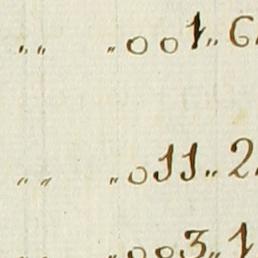 „ „ „ 001„ 6
„ „ „ 011„ 2
„ „ „ 003„ 1